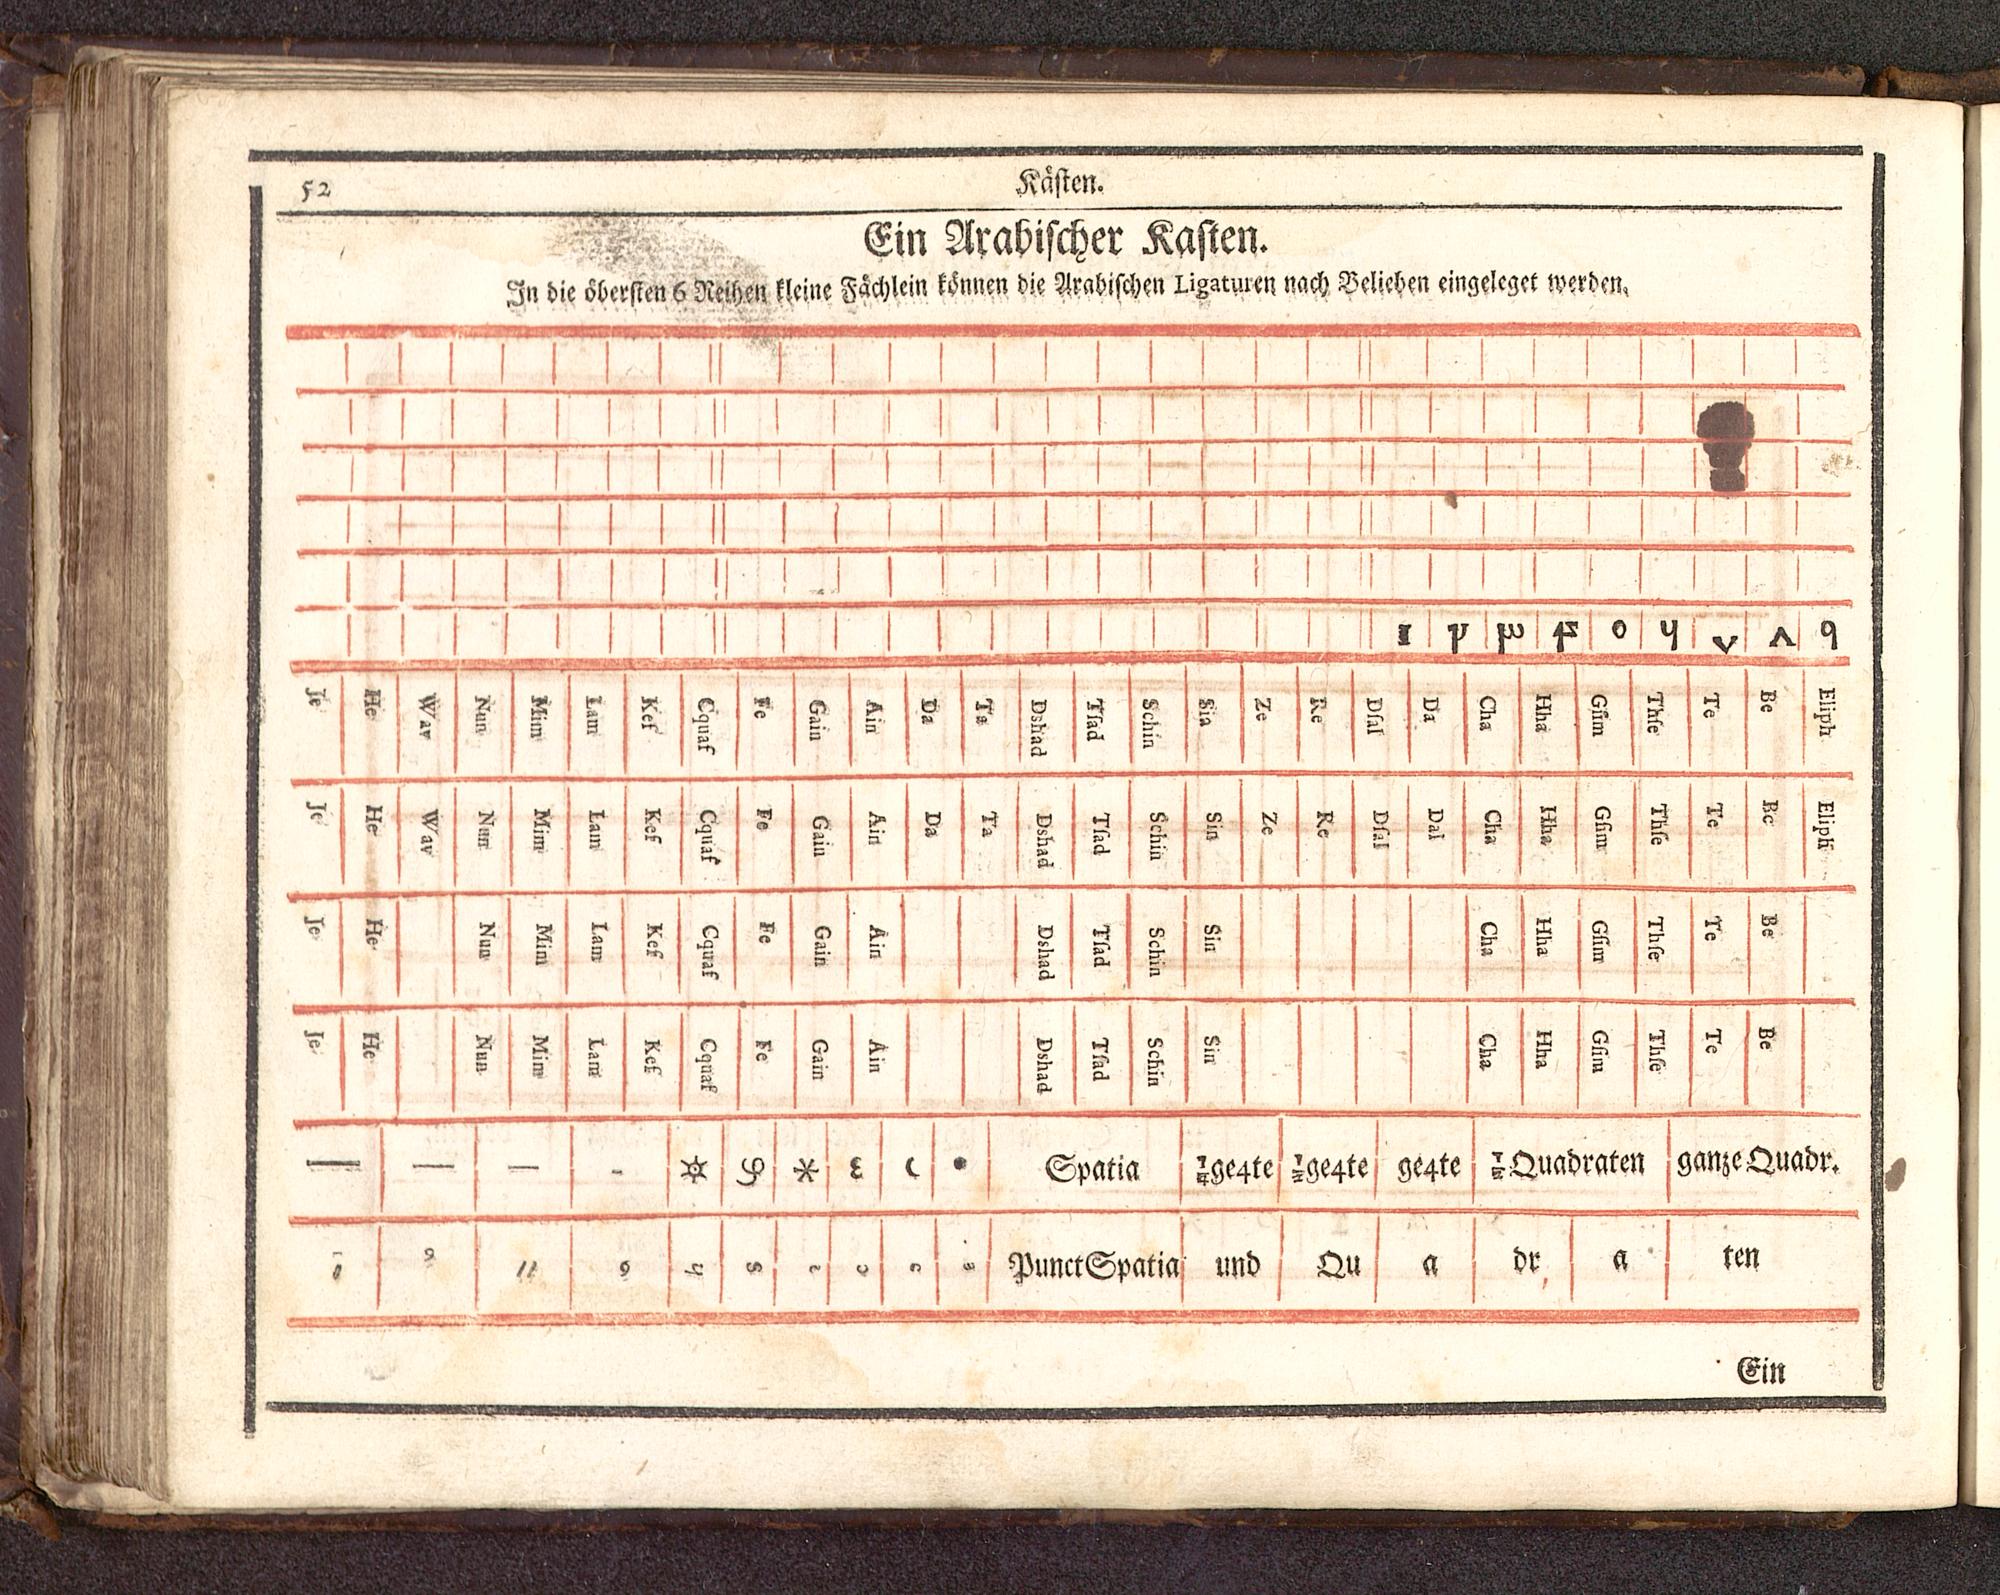 52
Käſten.
Ein Arabiſcher Kaſten.
In die öberſten 6 Reihen kleine Fächlein können die Arabiſchen Ligaturen nach Belieben eingeleget werden.
Je He Wav Nun Mim Lam Kef Cquaf Fe Gain Ain Da Ta Dshad Tſad Schin Sia Ze Re Dſal Da Cha Hha Gſim Thſe Te Be Eliph
Je He Wav Nun Mim Lam Kef Cquaf Fe Gain Ain Da Ta Dshad Tſad Schin Sin Ze Re Dſal Dal Cha Hha Gſim Thſe Te Be Eliph
Je He Nun Mim Lam Kef Cquaf Fe Gain Ain Dshad Tſad Schin Sin Cha Hha Gſim Thſe Te Be
Je He Nun Mim Lam Kef Cquaf Fe Gain Ain Dshad Tſad Schin Sin Cha Hha Gſim Thſe Te Be
— — — - * Spatia ¼ge4te ½ge4te ge4te ½Quadraten ganze Quadr.
PunctSpatia und Qu a dr, a ten
Ein